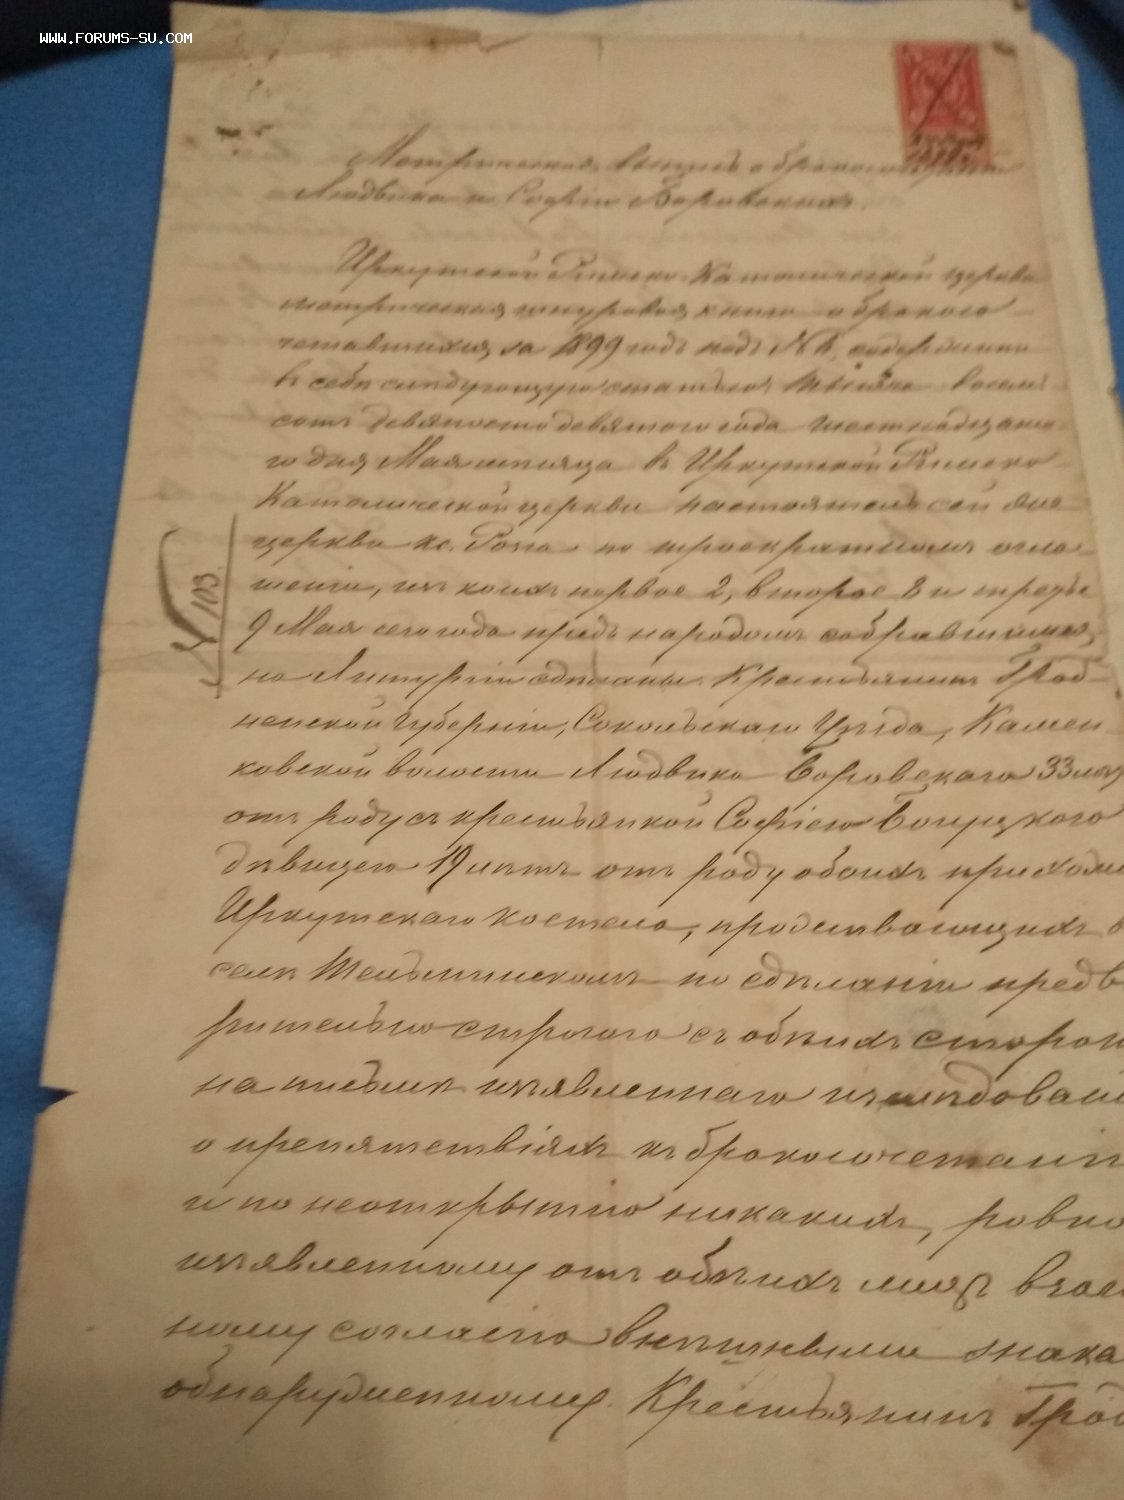 WWW.FORUMS-SU.COM
Метрическая выпись о бракосочетании
Людвика и Софіи Боровскихъ.
Иркутской Римско-Католической церкви
метрическая шнуровая книга о бракосо-
четавшихся за 1899 годъ подъ №
въ себѣ слѣдующую статью: Тысяча восемь-
сотъ девяносто девятаго года шестнадцата-
го дня Мая мѣсяца въ Иркутской Римско-
Католической церкви настоятель сей же
церкви кс. по троекратномъ огла-
шеніи, изъ коихъ первое 2, второе 8 и третье
9 Мая сего года предъ народомъ собравшимся
на Литургіи сдѣланы. Крестьянинъ Грод-
ненской Губерніи, Сокольскаго Уѣзда, Камен-
ковской волости Людвика Боровскаго 33 лѣтъ
отъ роду съ крестьянкой Софіею
дѣвицею 19 лѣтъ отъ роду обоихъ прихожа
Иркутскаго костела, проживающихъ в
селѣ Тельминскомъ по сдѣланіи предв
рительно строгаго съ обѣихъ сторон
на письмѣ изъявленнаго изслѣдовані
о препятствіяхъ къ бракосочетанію
и по неоткрытію никакихъ, равно
изъявленному отъ обѣихъ лицъ взаи
ному согласію внѣшними знака
обнаруженному. Крестьянинъ Грод
№ 103